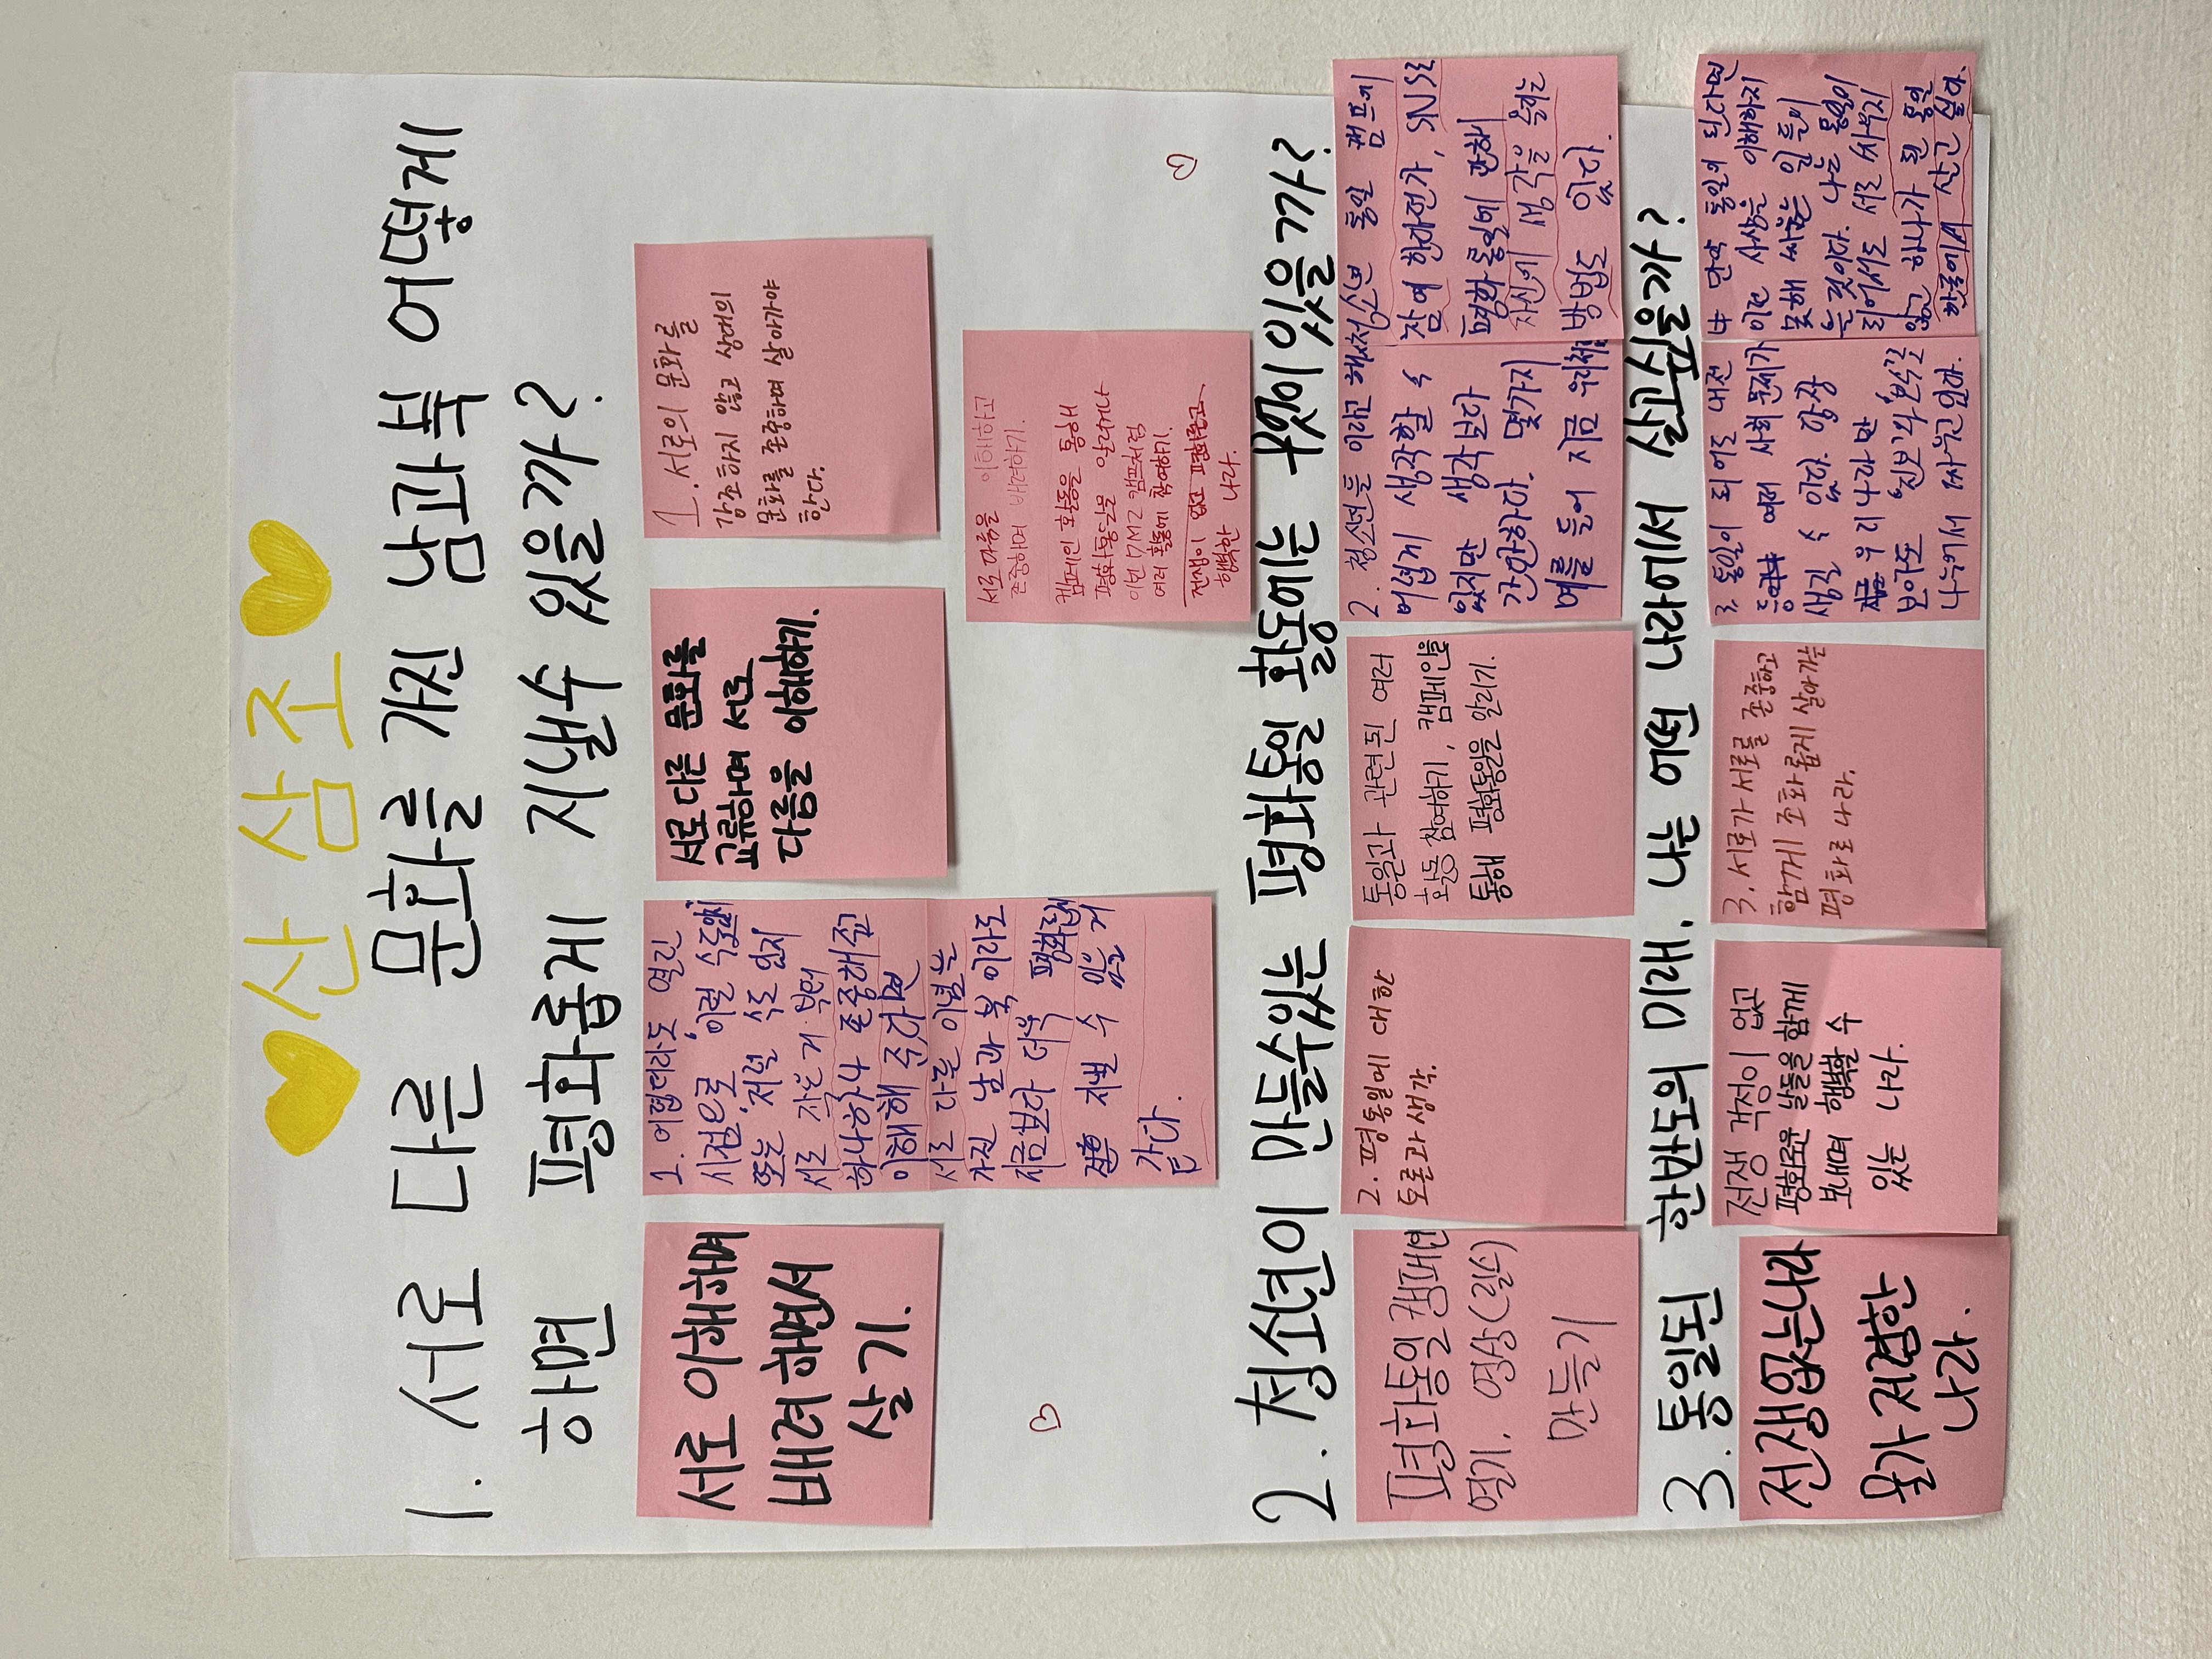 산 삼 조
1. 서로 다른 문화를 가진 남과북 어떻게
하면 평화롭게 지낼수 있을까?
서로 이해하며
배려하면서
살기.
1. 어렵더라도 열린
시점으로 '이럴 수도
또는 '저럴 수도 있지
서로 작은 거 부터
하나하나 존중해주고
이해해 준다면
서로 다른 이념을
가진 남과 북 이라도
지금보다 더욱
지낼 수 있을 거
같다.
서로 다른 문화를
교류하며 서로
다름을 이해하기.
1. 서로의 문화를
강조하지 않고 상대의
문화를 존중하며 살아가야
한다.
서로 다름을 이해하고
존중하며 배려하기.
캠페인 활동을 통해
평화통일을 알리거나
이번 DMZ 캠프처럼
여러 활동에 참여하기.
전쟁이 없고 평화롭고
행복한 나라.
2. 청소년이 만들수있는 평화통일 활동에는 무엇이있을까?
평화통일 캠페인
열기, 영상(릴스)
만들기
2. 평통일에 대한
토론과 생각.
통일과 관련된 여러
활동 참여하기, 캠페인을
통해 평화통일을 알리기.
2. 청소년들 이라고 해서
어렵게 생각할 수
있지만 생각보다
간단하다. 몇가지
예를 들어 지금 우리처럼
청소년 통일 캠프에
참여 한다던가, SNS로
평화통일에 관해
자신에 생각을 알리는
방법도 있다.
3. 통일된 한반도의 미래, 나는 어떤 나라에서 살고싶을까?
전쟁없는나라
물가 저렴한
나라.
전쟁 걱정이 없고
평화로운 날들을 함께
보내며 행복할 수
있는 나라.
3. 서로가 서로를 존중하고
함께 조화롭게 살아가는
평화로 나라.
3. 통일이 되어도 내전
여러 사회 문제가
생길 수 있다. 당장
우리나라만
봐도
나누어서 싸우는데.
만약 통일이 된다면
이런 사상을 이해하지
못해 싸우는 일들이
늘 것이다. 나는 통일이
되어서도 서로 싸우지
않고 하나가 된 통일
나라에서 살고 싶다.